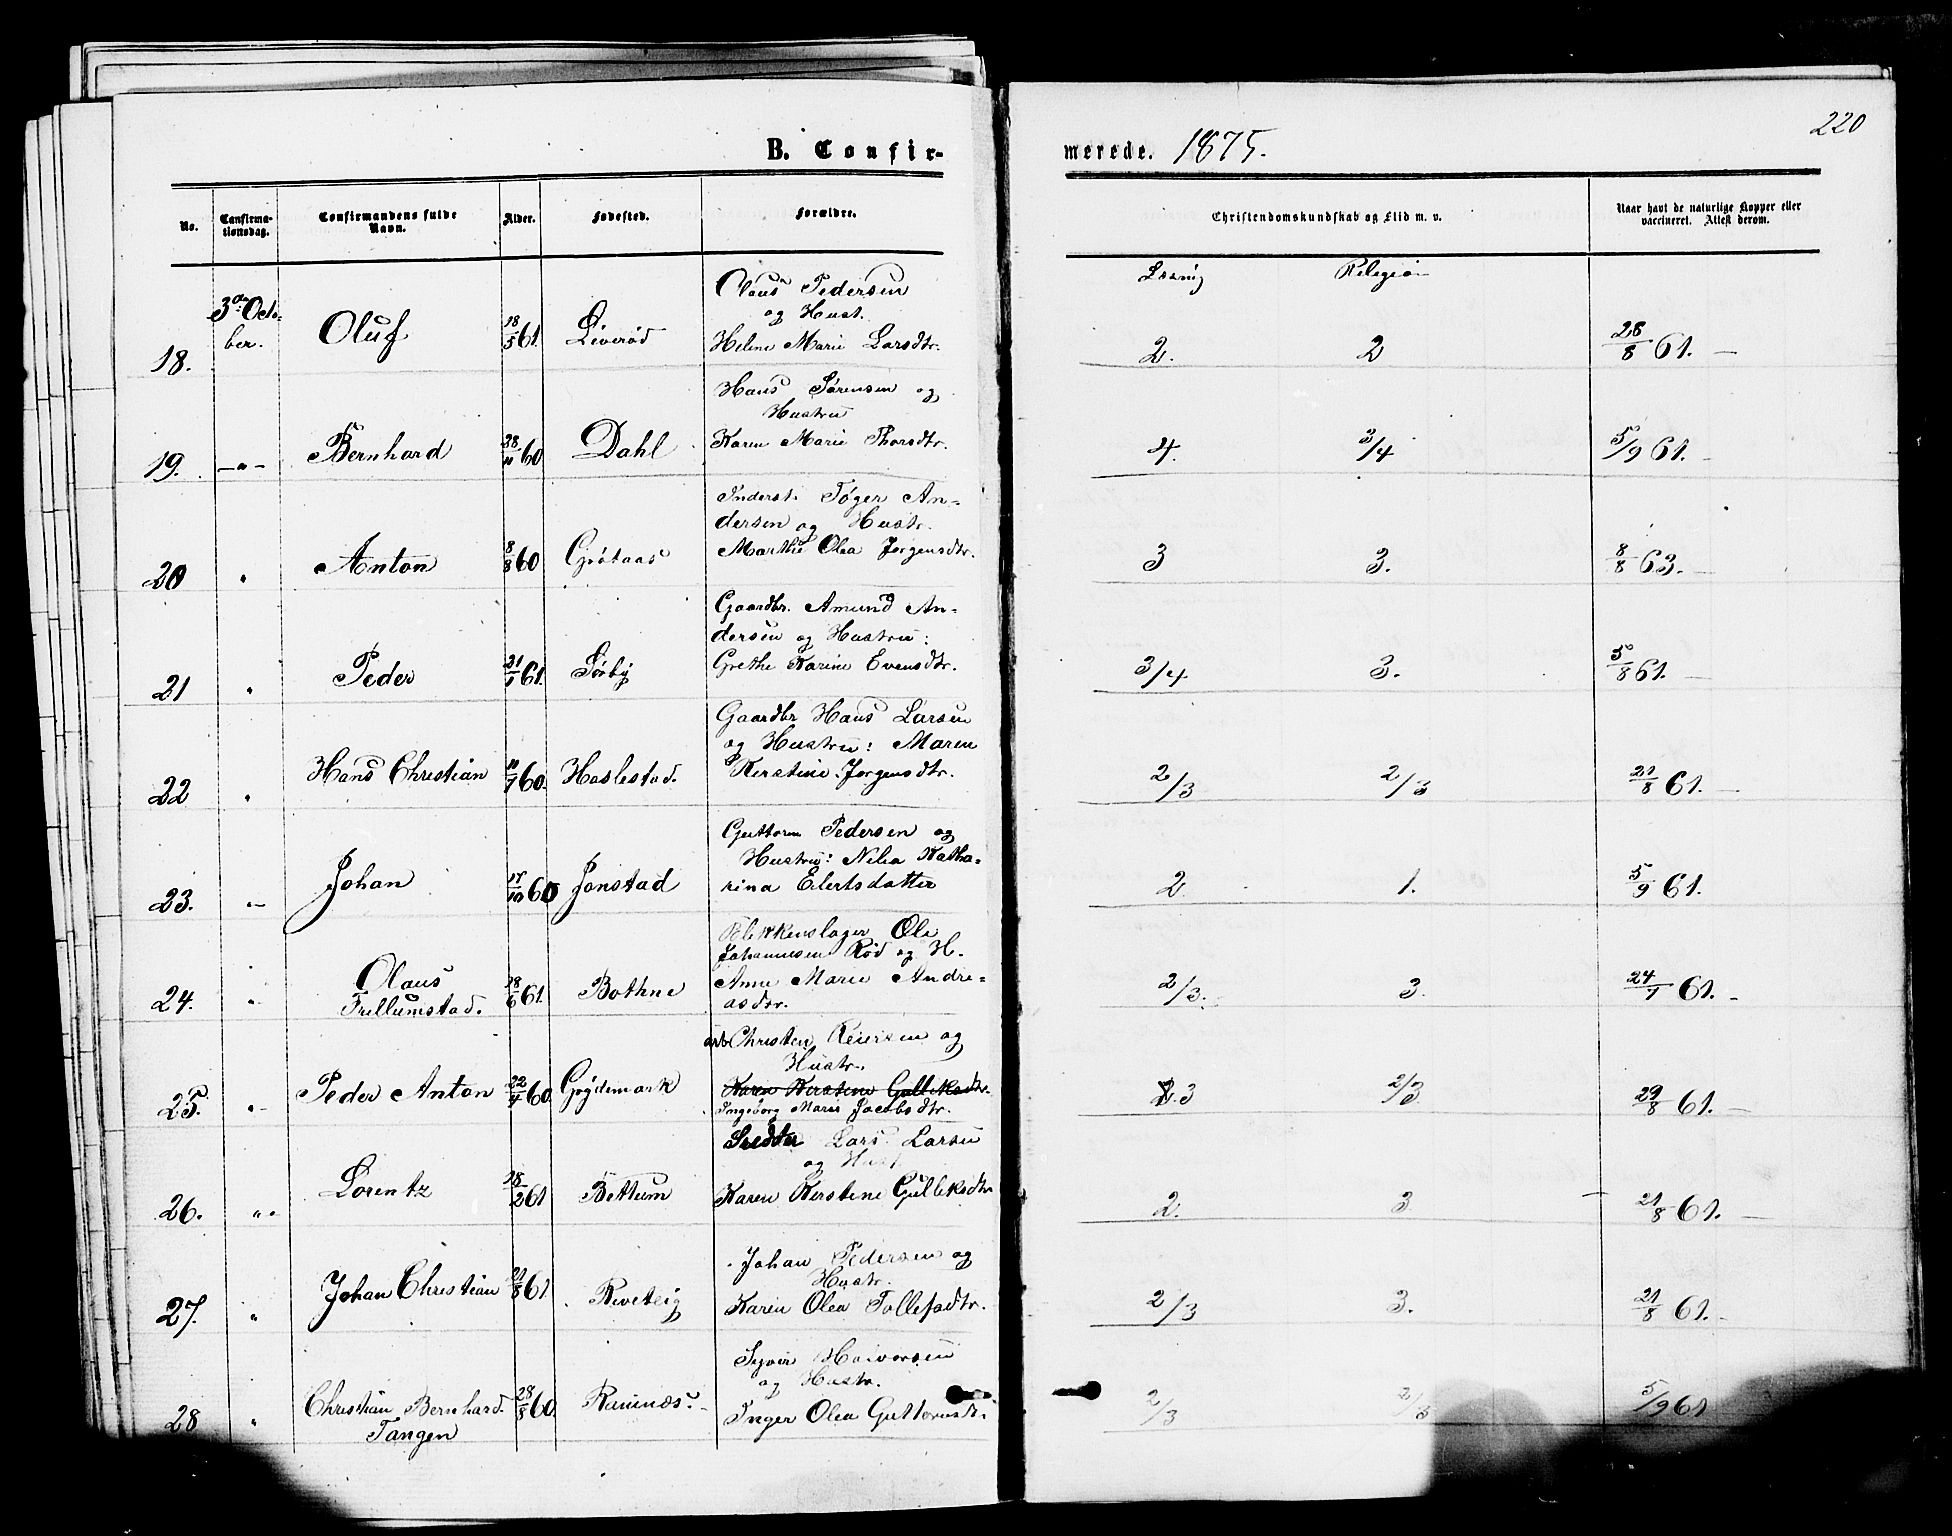 220
B. Confir-
merede. 1875.
No.
Confirma-
tionsdag.
Confirmandens fulde
Navn.
Alder.
Fødested.
Forældre.
Christendomskundskab og Flid m. v.
Naar havt de naturlige Kopper eller
vaccineret. Attest derom.
Læsnig Religion
18. 3die Octo-
ber. Oluf 18/5 61. Liverød
Claus Pedersen
og Hust.
Helene Marie Larsdtr.
2. 2 28/8 61. —
19. —"— Bernhard 28/11 60 Dahl
Hans Sørensen og
Hustru
Karen Marie Thorsdtr.
4. 3/4 5/9 61. —
20 " Anton 8/8 60 Grøtaas
Inderst. Tøger An-
dersen og Hustr.
Marthe Olea Jørgensdtr.
3 3. 8/8 63. —
21 " Peder 21/1 61. Sørby
Gaardbr. Amund An-
dersen og Hustru:
Grethe Karine Evensdtr.
3/4 3. 5/8 61. —
22 " Hans Christian 10/7 60. Haslestad.
Gaardbr Hans Larsen
og Hustru: Maren
Kerstine Jørgensdtr.
2/3 2/3 21/8 61. —
23. "— Johan 17/10 60 Jonstad
Guttorm Pedersen og
Hustru: Nilia Katha-
rina Eilertsdatter
2 1. 5/9 61.
24. "— Olaus
Frellumstad. 18/6 61. Bothne
Blikkenslager Ole
Johannesen Rød og H.
Anne Marie Andre-
asdtr.
2/3. 3. 24/7 61. -
25. "— Peder Anton 22/7 60. Grydemark
arb Christen Reiersen og
Hustr.
Karen Kerstine Gulliksdtr.
Ingeborg Marie Jacobsdtr.
3 2/3 29/8 61. —
26. " " Lorentz 18/2 61 Bettum
Lars Larsen
og Hust
Karen Kerstine Gulliksdtr
2. 3 21/8 61. —
27. " Johan Christian 21/8 61 Riveteig
Johan Pedersen og
Hustr.
Karen Olea Tollefsdtr.
2/3 3. 21/8 61. -
28 " Christian Bernhard.
Tangen 28/8 60. Raunæs.
Halvorsen
og Hustr.
Inger Olea Guttormsdtr.
2/3 2/3 5/9 61